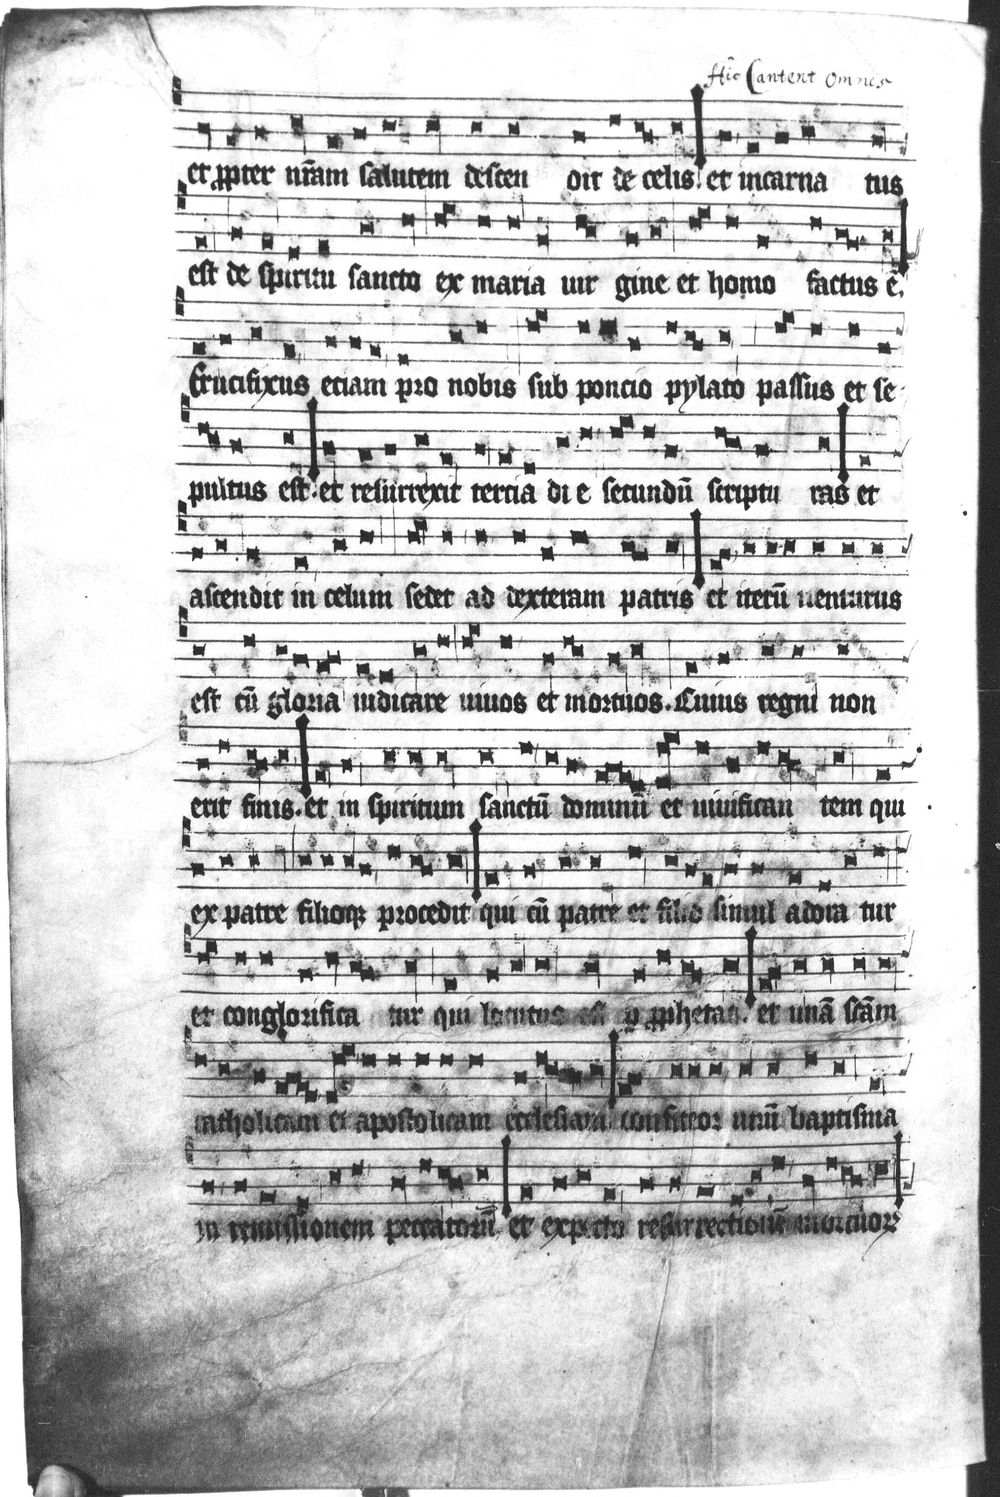 Hic Cantent Omnes
et ꝓpter nr̄am salutem descen dit de celis. et incarna tus
est de spiritu sancto ex maria uir gine et homo factus ē.
Crucifixus eciam pro nobis sub poncio pylato passus et se
pultus est. et resurrexit tercia di e secundū scriptu ras et
ascendit in celum sedet ad dexteram patris et iterū uenturus
est cū gloria iudicare uiuos et mortuos. Cuius regni non
erit finis. et in spiritum sanctū dominū et uiuifican tem qui
ex patre filioqꝫ procedit qui cū patre et filio simul adora tur
et conglorifica tur qui locutus est ꝑ ꝓphetas. et unā scām
catholicam et apostolicam ecclesiam confiteor unū baptisma
in remissionem peccatorū et expecto resurrectionē mortuoꝝ